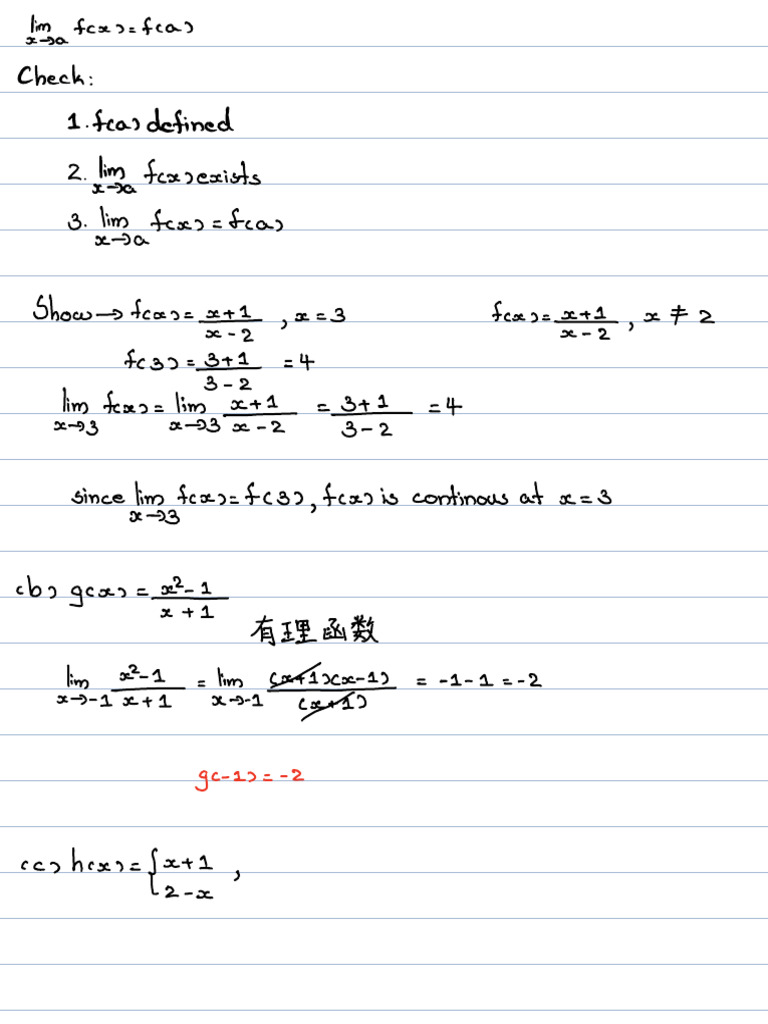 lim x→a f(x) = f(a)
Check:
1. f(a) defined
2. lim x→a f(x) exists
3. lim x→a f(x) = f(a)
Show → f(x) = (x+1)/(x-2) , x = 3
f(x) = (x+1)/(x-2) , x ≠ 2
f(3) = (3+1)/(3-2) = 4
lim x→3 f(x) = lim x→3 (x+1)/(x-2) = (3+1)/(3-2) = 4
since lim x→3 f(x) = f(3), f(x) is continous at x = 3
(b) g(x) = (x²-1)/(x+1)
有理函数
lim x→-1 (x²-1)/(x+1) = lim x→-1 (x+1)(x-1)/(x+1) = -1-1 = -2
g(-1) = -2
(c) h(x) = { x+1 ,
2-x